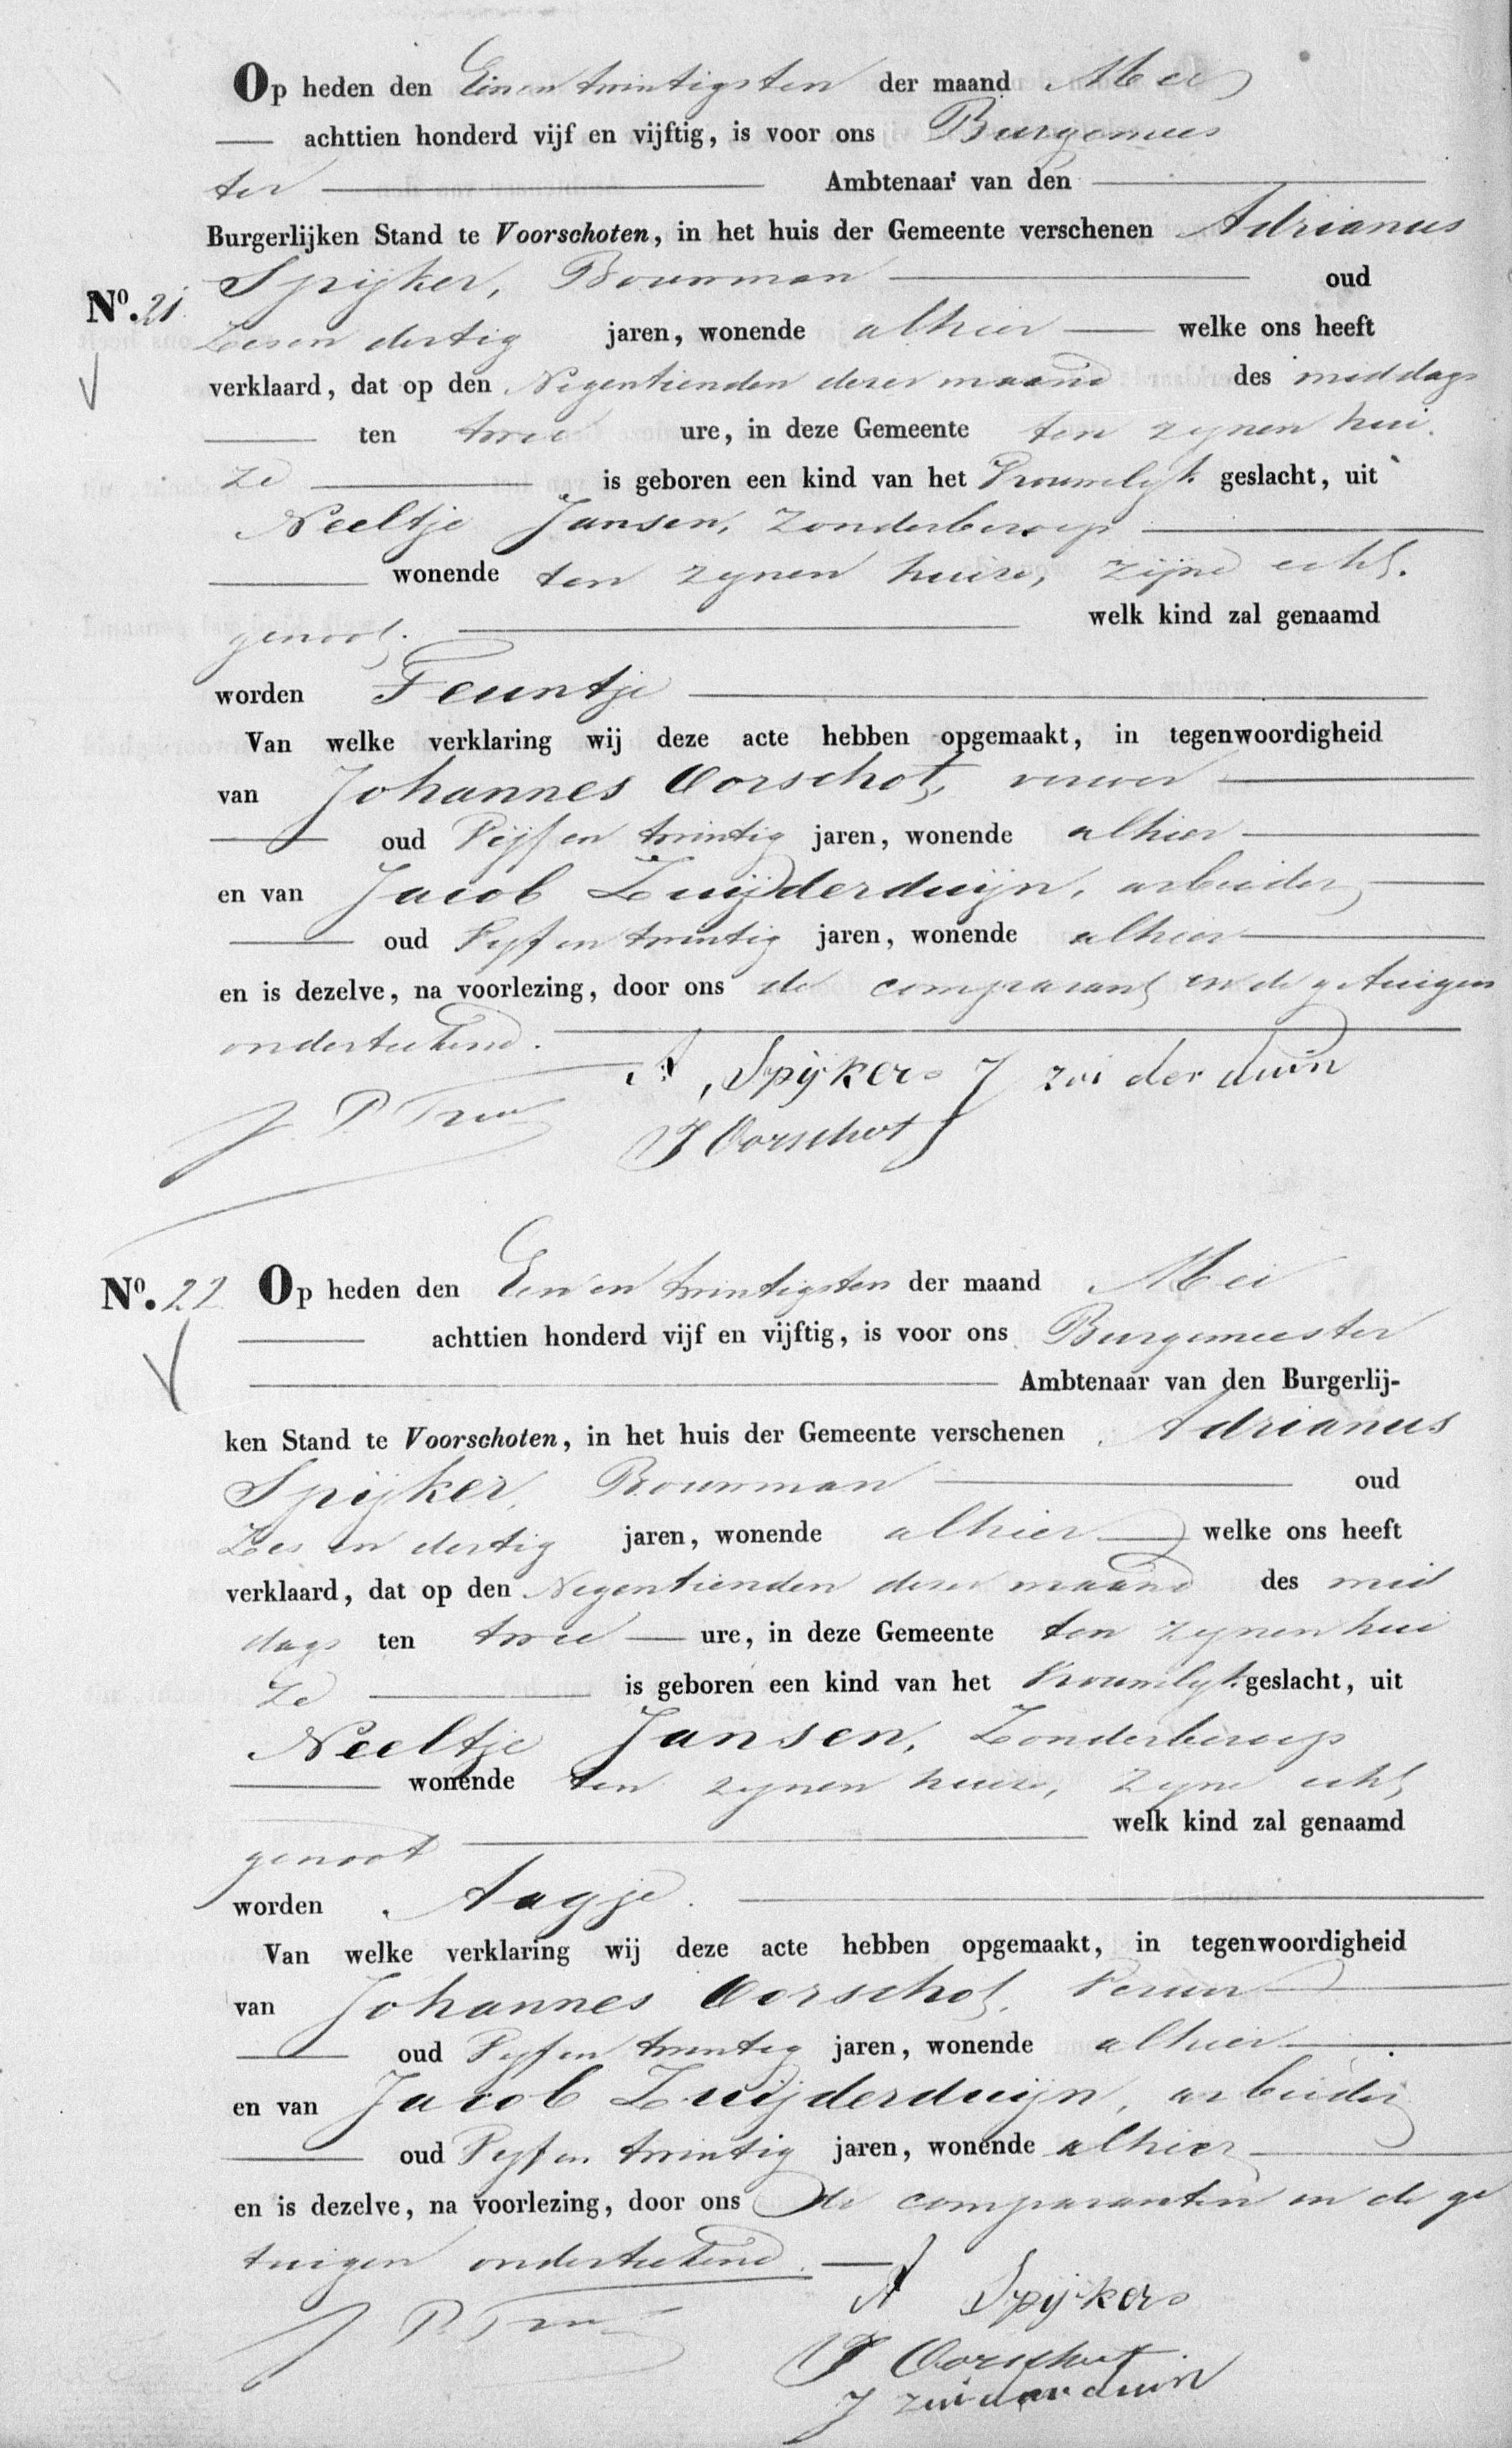 Op heden den Een en twintigsten der maand Mei
achttien honderd vijf en vijftig, is voor ons Burgemees
ter Ambtenaar van den
Burgerlijken Stand te Voorschoten, in het huis der Gemeente verschenen Adrianus
Spijker, Bouwman oud
No. 21
Zes en dertig jaren, wonende alhier welke ons heeft
verklaard, dat op den Negentienden dezer maand des middags
ten twee ure, in deze Gemeente ten zynen hui
ze is geboren een kind van het Vrouwelijk geslacht, uit
Neeltje Jansen, Zonder beroep
wonende ten zynen huize, zijne echt
genoot. welk kind zal genaamd
worden Teuntje
Van welke verklaring wij deze acte hebben opgemaakt, in tegenwoordigheid
van Johannes Oorschot, verwer
oud Vijf en twintig jaren, wonende alhier
en van Jacob Zuijderduijn, arbeider
oud Vyf en twintig jaren, wonende alhier
en is dezelve, na voorlezing, door ons de comparant en de getuigen
onderteekend.
A, Spijkers J zui der duin
J. P. 
J Oorschot
No. 22 Op heden den Een en twintigsten der maand Mei
achttien honderd vijf en vijftig, is voor ons Burgemeester
Ambtenaar van den Burgerlij-
ken Stand te Voorschoten, in het huis der Gemeente verschenen Adrianus
Spijker, Bouwman oud
Zes en dertig jaren, wonende alhier welke ons heeft
verklaard, dat op den Negentienden dezer maand des mid
dags ten twee ure, in deze Gemeente ten zynen hui
ze is geboren een kind van het Vrouwelyk geslacht, uit
Neeltje Jansen, Zonder beroep
wonende ten zynen huize, zyne echt
genoot welk kind zal genaamd
worden Aagje
Van welke verklaring wij deze acte hebben opgemaakt, in tegenwoordigheid
van Johannes Oorschot, Verwer
oud Vyf en twintig jaren, wonende alhier
en van Jacob Zuijderduijn, arbeider
oud Vyf en twintig jaren, wonende alhier
en is dezelve, na voorlezing, door ons de comparanten en de ge
tuigen onderteekend.
A Spijkers
J. P. 
J Oorschot
J zuiderduin